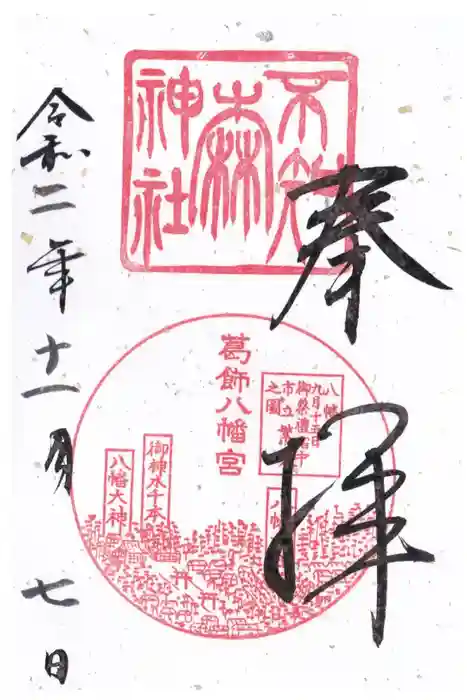 奉拝
不知
森
神社
葛飾八幡宮
八幡
九月十五日
御祭禮
市立
之圖
御神水千本
八幡大神
八幡
令和二年十一月七日